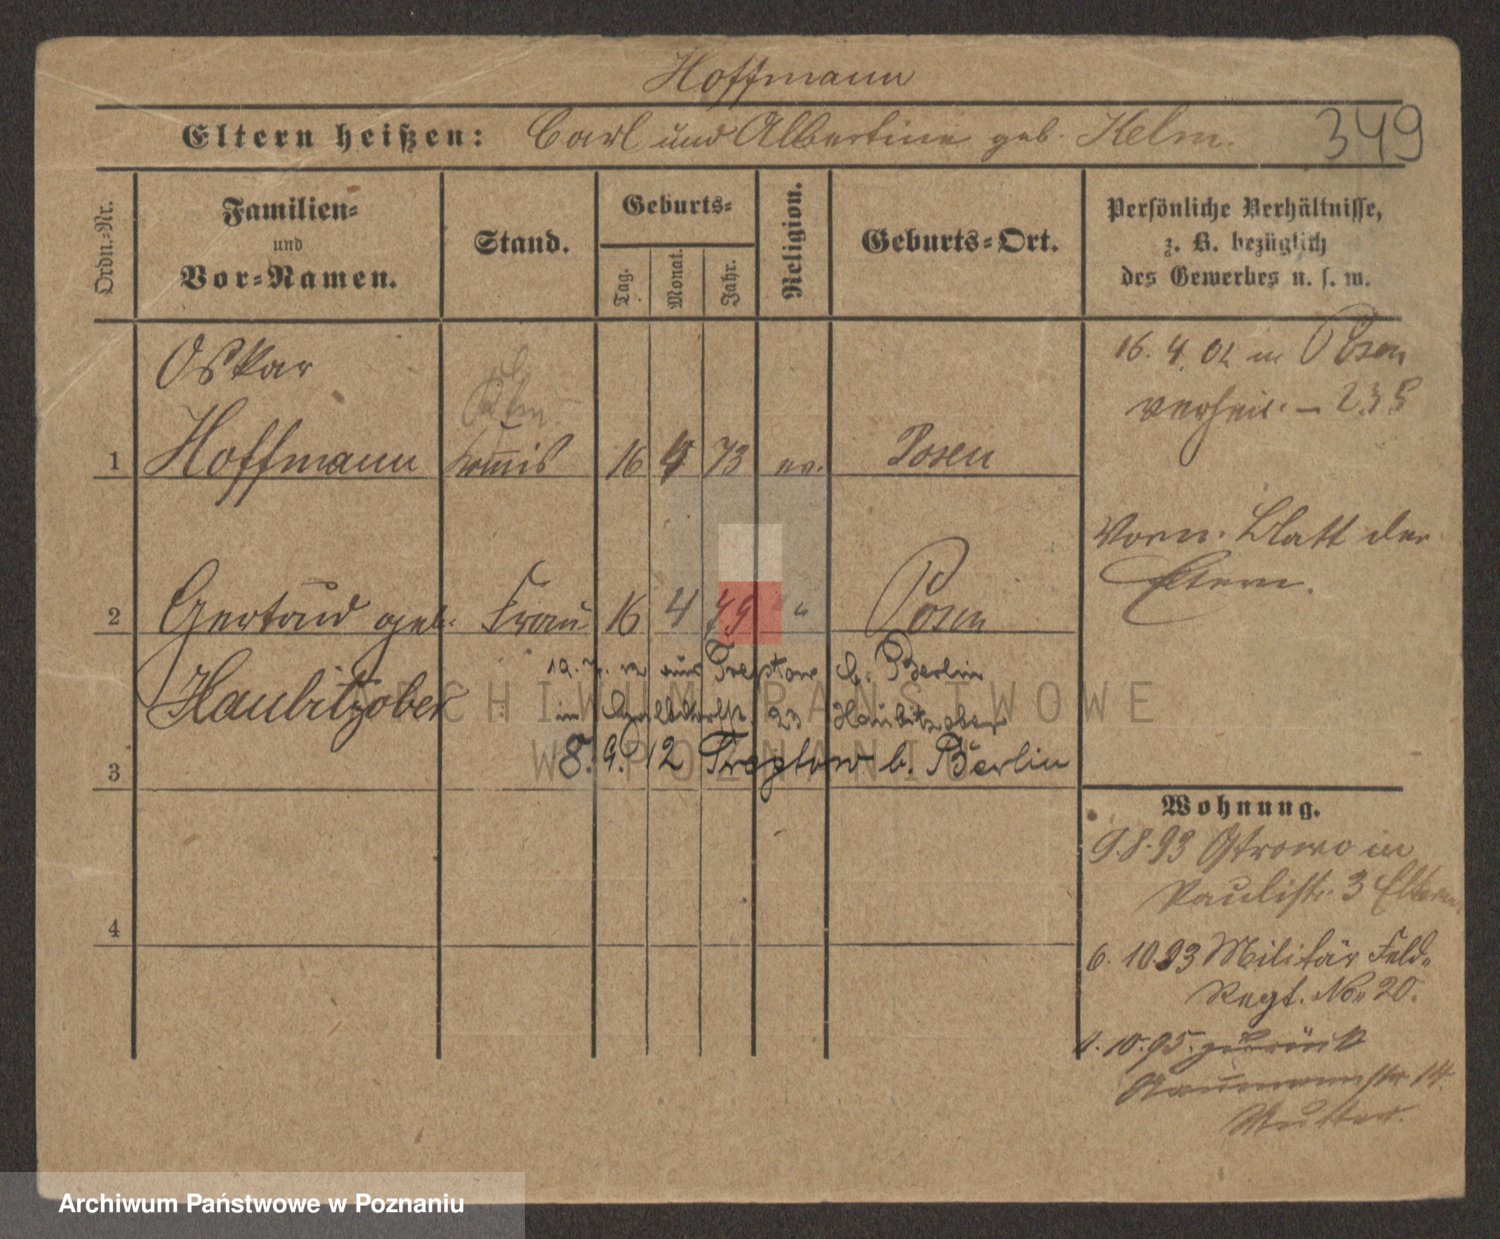 Hoffmann
Eltern heißen: Carl und Albertine geb. Kelm.
349
Ordn.-Nr.
Familien-
und
Vor-Namen.
Stand.
Geburts-
Tag.
Monat.
Jahr.
Religion.
Geburts-Ort.
Persönliche Verhältnisse,
z. B. bezüglich
des Gewerbes u. s. w.
Oskar
1 Hoffmann 16 73 ev. Posen
16. 4. 02 in Posen
verheir. –
Vorn. Blatt der
Eltern.
2 Gertrud geb. Frau 16 4 79 " Posen
Haubitzober
Treptow b. Berlin
23 Haubitzober
3 8. 9. 12 Treptow b. Berlin
4
Wohnung.
9.8.93 Ostrowo in
Paulistr. 3 Eltern
6. 10.93 Militär Feld-
Regt. No. 20.
10.95. zurück
Naumannstr 14.
Mutter.
ARCHIWUM PAŃSTWOWE
W POZNANIU
Archiwum Państwowe w Poznaniu